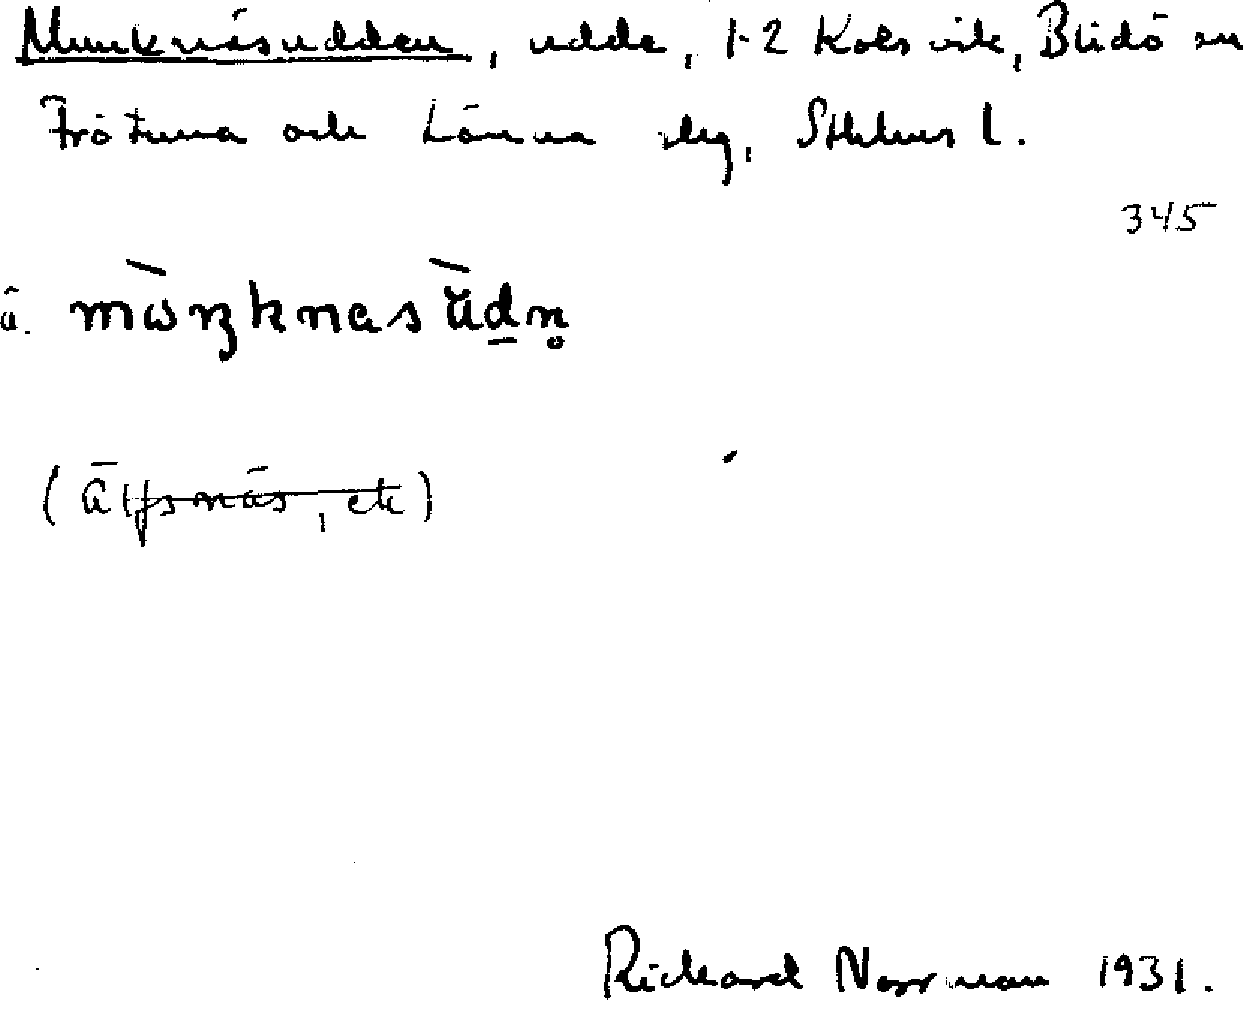 Munknäsudden, udde, 1-2 Kolsvik, Blidö sn
Frötuna och Länna slg, Sthlms l.
345
å. mὼŋknasùdn̥
(Älgsnäs, etc)
Richard Norrman 1931.